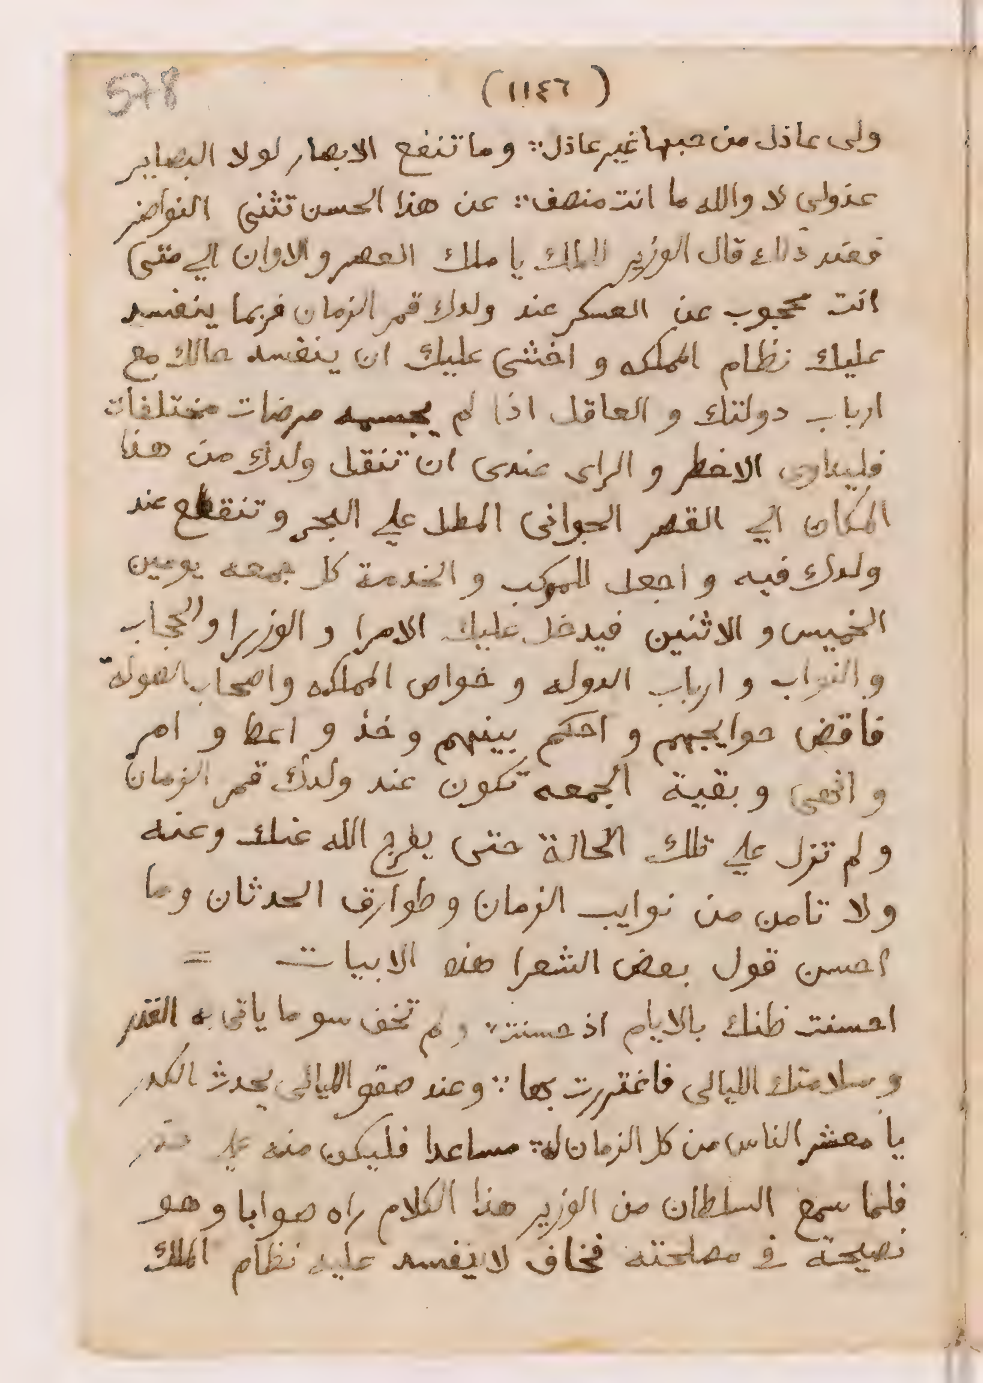 578
(١١٤٦)
ولى عاذل من حبها غير عاذل ؞ وما تنفع الابصار لولا البصاير
عذولي لا والله ما انت منصف ؞ عن هذا الحسن تثنى النواضر
فعند ذلك قال الوزير للملك يا ملك العصر والاوان الي متى
انت محجوب عن العسكر عند ولدك قمر الزمان فربما ينفسد
عليك نظام المملكه و اخشى عليك ان ينفسد حالك مع
ارباب دولتك و العاقل اذا لم بجسمه مرضات مختلفات
فليداوى الاخطر و الراى عندى ان تنقل ولدك من هذا
المكان الي القصر الجوانى المطل علي البحر و تنقطع عند
ولدك فيه و اجعل للموكب و الخدمة كل جمعه يومين
الخميس و الاثنين فيدخل عليك الامرا و الوزرا والحجاب
و النواب و ارباب الدوله و خواص المملكه واصحاب الصولة
فاقض حوايجهم و احكم بينهم و خذ و اعط و امر
و انهى و بقية الجمعه تكون عند ولدك قمر الزمان
و لم تزل علي تلك الحالة حتى يفرج الله عنك وعنه
ولا تامن من نوايب الزمان و طوارق الحدثان وما
احسن قول بعض الشعرا هذه الابيات =
احسنت ظنك بالايام اذ حسنت ؞ ولم تخف سو ما ياتى به القدر
و سلامتك الليالى فاغتررت بها ؞ وعند صفو الليالى يحدث الكدر
يا معشر الناس من كل الزمان له ؞ مساعدا فليكن منه علي حذر
فلما سمع السلطان من الوزير هذا الكلام راه صوابا و هو
نصيحة في مصلحته فخاف لاينفسد عليه نظام الملك